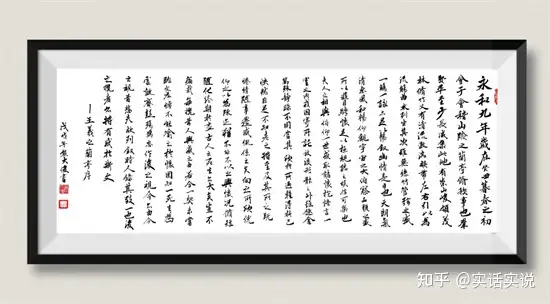 永和九年歲在癸丑暮春之初
會于會稽山陰之蘭亭脩稧事也羣
賢畢至少長咸集此地有崇山峻領茂
林脩竹又有清流激湍映帶左右引以為
流觴曲水列坐其次雖無絲竹管弦之盛
一觴一詠亦足以暢敘幽情是日也天朗氣
清惠風和暢仰觀宇宙之大俯察品類之盛
所以遊目騁懷足以極視聽之娛信可樂也
夫人之相與俯仰一世或取諸懷抱悟言一
室之內或因寄所託放浪形骸之外雖趣舍
萬殊靜躁不同當其欣於所遇暫得於己
快然自足不知老之將至及其所之既
倦情隨事遷感慨係之矣向之所欣俛
仰之閒以為陳迹猶不能不以之興懷況脩短
隨化終期於盡古人云死生亦大矣豈不
痛哉每攬昔人興感之由若合一契未嘗
臨文嗟悼不能喻之於懷固知一死生為
虛誕齊彭殤為妄作後之視今亦由今
之視昔悲夫故列敘時人其致一也後
之覽者亦將有感於斯文
王羲之蘭亭序
戊戌年
知乎 @实话实说